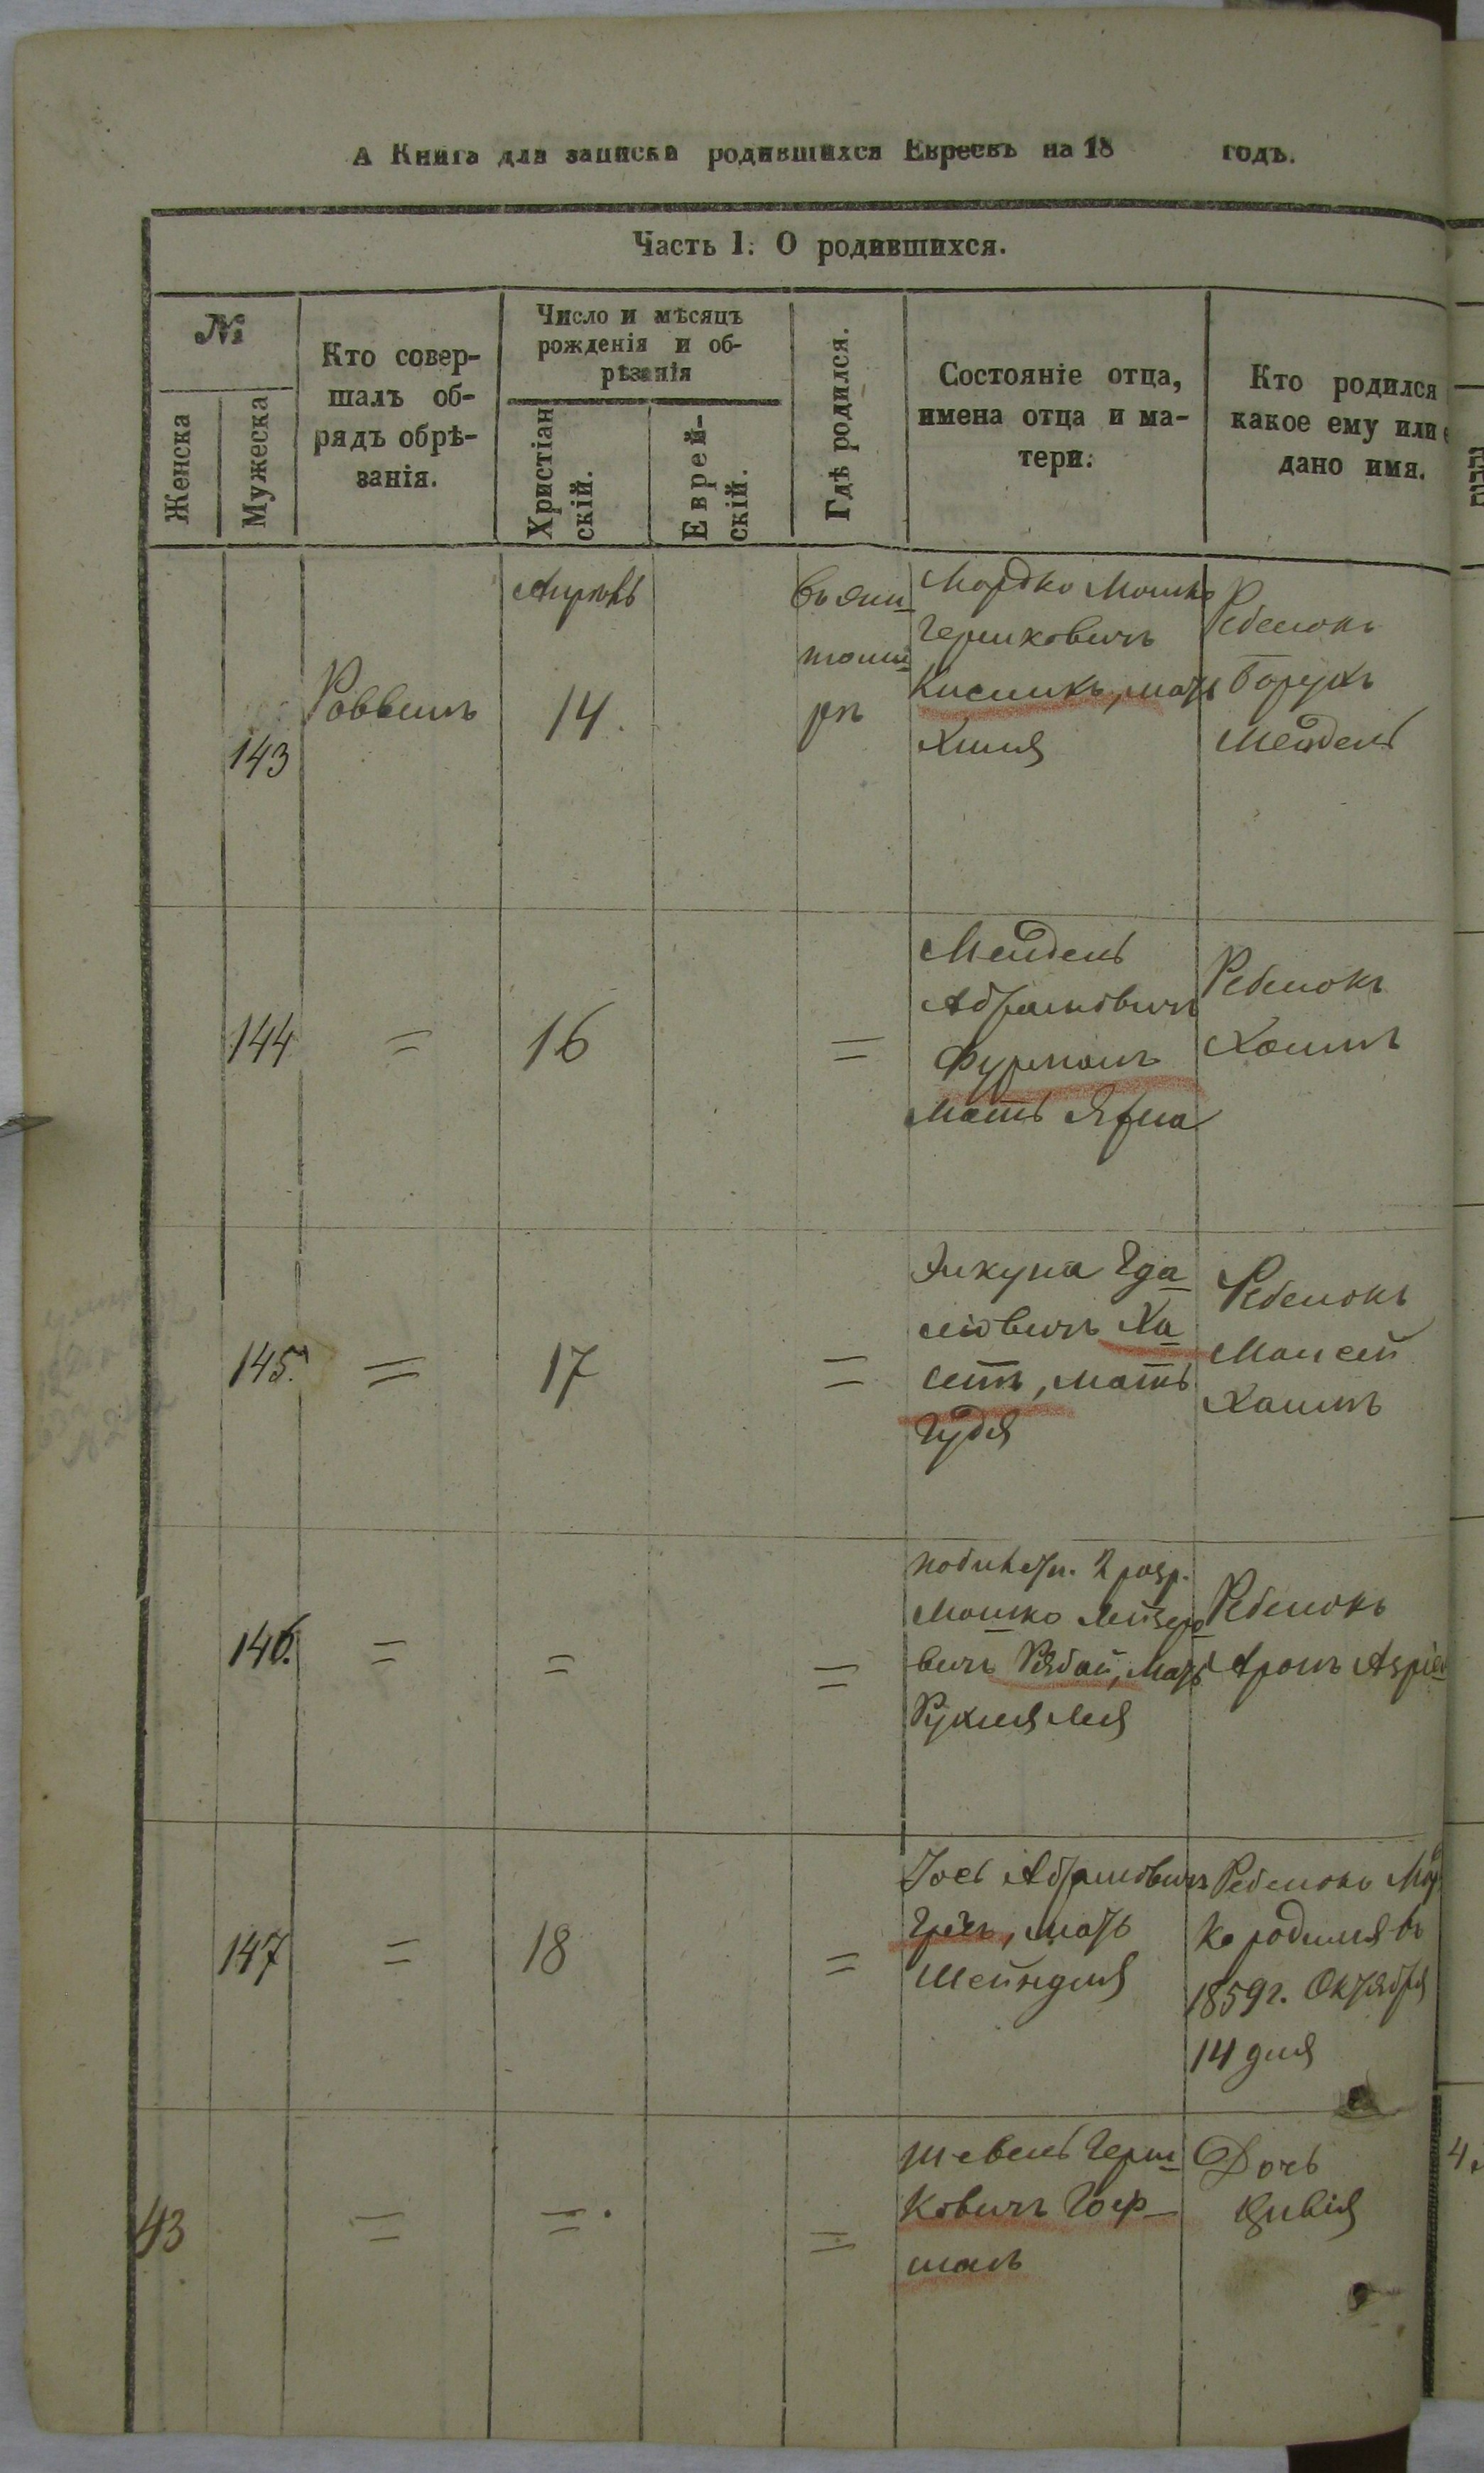 А Книга для записки родившихся Евреевъ на 18 годъ.
Часть 1. О родившихся.
№
Женска
Мужеска
Кто совер-
шалъ об-
рядъ обрѣ-
занія.
Число и мѣсяцъ
рожденія и об-
рѣзанія
Христіан
скій.
Еврей-
скій.
Гдѣ родился.
Состояніе отца,
имена отца и ма-
тери.
Кто родился
какое ему или е
дано имя.
143
Раввинъ
Апрѣль
14.
въ Жи
томи
рѣ
Мордко Мошко
Гершковичъ
мать
Ребенокъ
Борухъ
Мендель
144
=
16
=
Мендель
Абрамовичъ
Фурманъ
Мать
Ребенокъ
Хаимъ
145.
=
17
=
Янкуна Гда
ліовичъ Ха
мать
Гудя
Ребенокъ
Моисей
Хаимъ
146.
=
=
=
2 разр.
Мошко Лейзеро
вичъ Рябой, Мать
Рухля Лея
Ребенокъ
Аронъ Азріе
147
=
18
=
Іось Абрамовичъ
мать
Шейндля
Ребенокъ Мор
ко родился въ
1859 г. Октября
14 дня
43
=
=.
=
Шевель Герш
ковичъ Гоф-
манъ
Дочь
Цивія
4